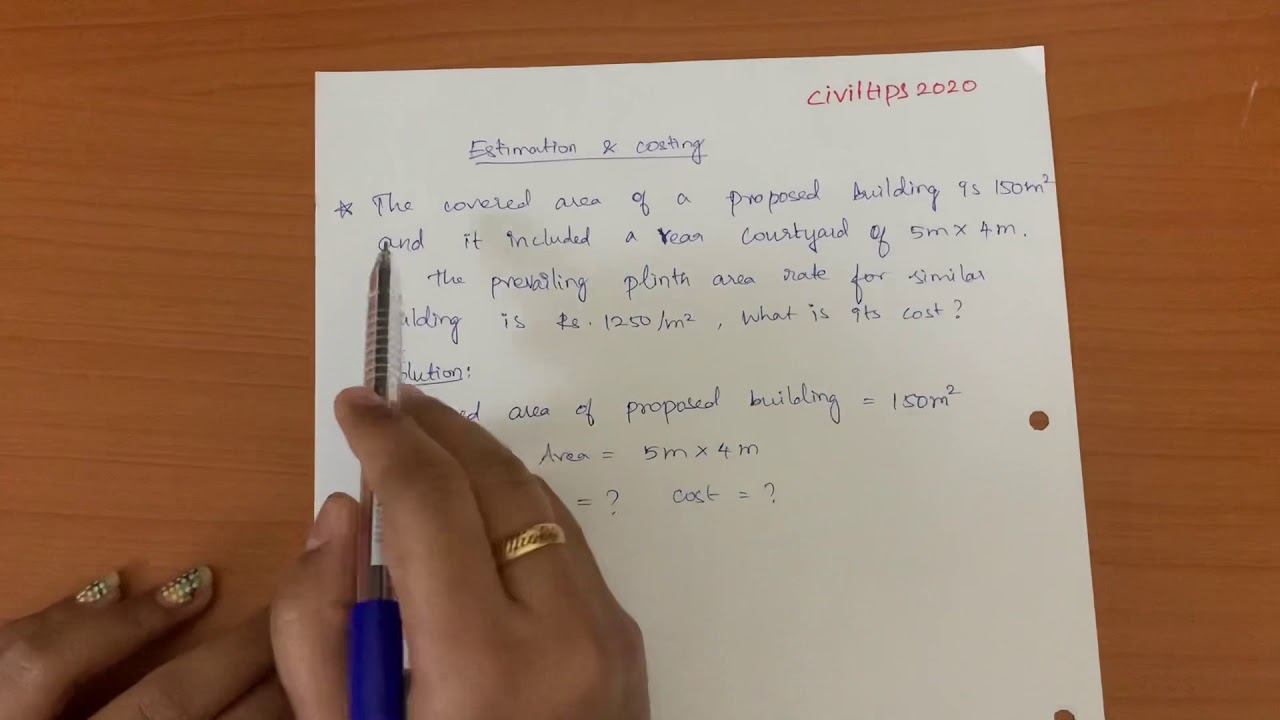 civiltips2020
Estimation & costing
* The covered area of a proposed building is 150m²
and it included a rear courtyard of 5m x 4m.
the prevailing plinth area rate for similar
is Rs. 1250/m², What is its cost?
area of proposed building = 150m²
Area = 5m x 4m
= ? cost = ?